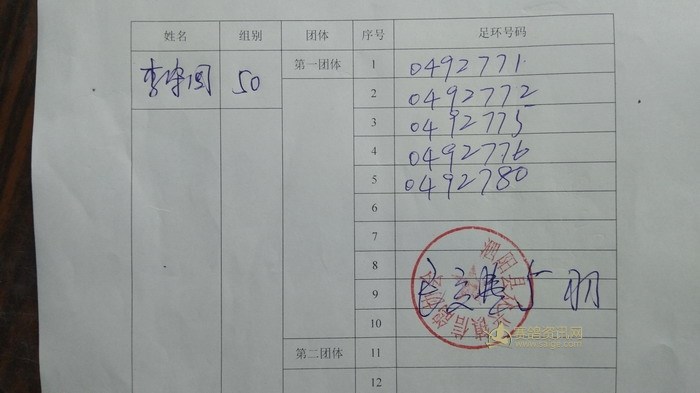 姓名 组别 团体 序号 足环号码
50 第一团体 1 0492771
2 0492772
3 0492775
4 0492776
5 0492780
6
7
8
9
10
第二团体 11
12
赛鸽资讯网
www.saige.com